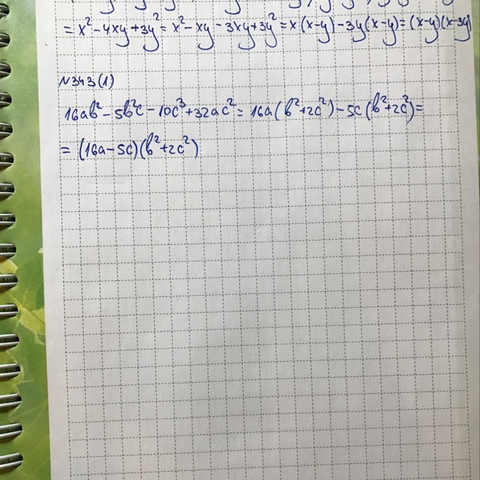 = x² - 4xy + 3y² = x² - xy - 3xy + 3y² = x(x-y) - 3y(x-y) = (x-y)(x-3y)
N343(1)
16ab² - 5b²c - 10c³ + 32ac² = 16a(b²+2c²) - 5c(b²+2c²) =
= (16a-5c)(b²+2c²)